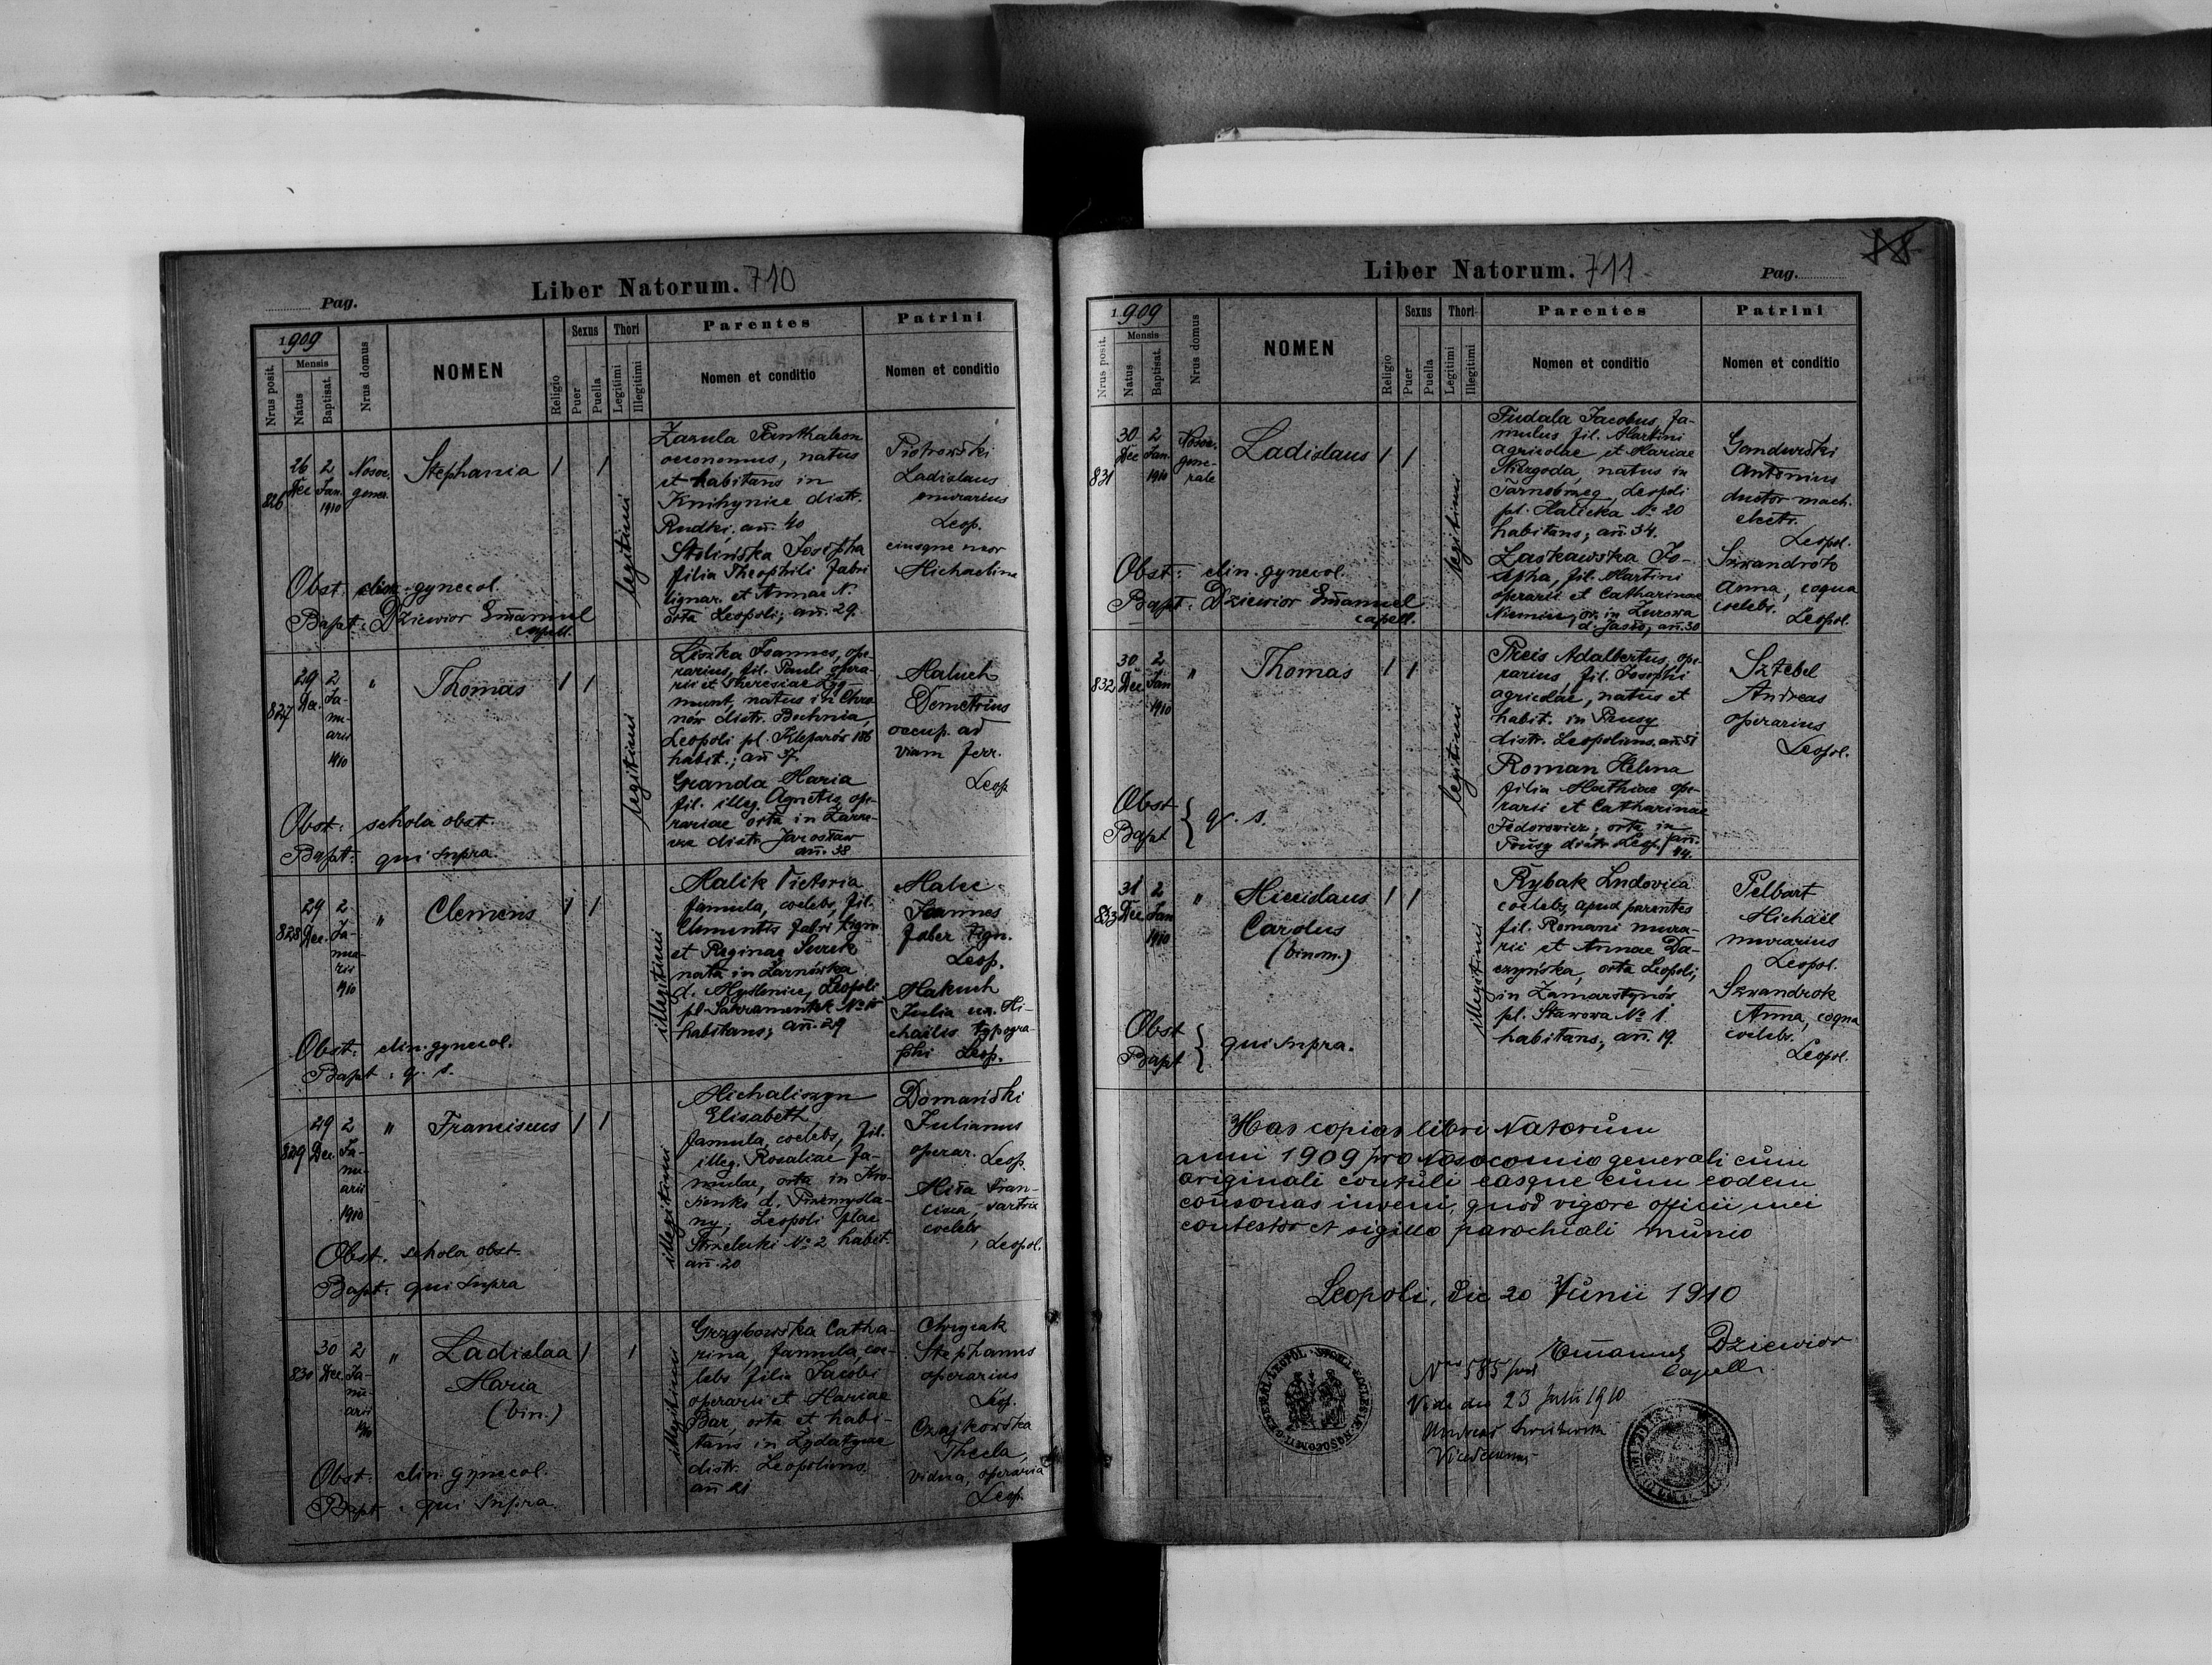 Pag.
Liber Natorum. 710
1909
Nrus posit.
Mensis
Natus
Baptisat.
Nrus domus
NOMEN
Religio
Sexus
Puer
Puella
Thori
Legitimi
Illegitimi
Parentes
Nomen et conditio
Patrini
Nomen et conditio
826
26 Dec
2 Jan. 1910
Nosoc. gener.
Stephania
legitimi
Zarula Panthaleon
oeconomus, natus
et habitans in
Knihynice distr.
Rudki, an. 40
Stolińska Josepha
filia Theophili fabri
lignar. et Annae N.
orta Leopoli; an. 29.
Piotrowski
Ladislaus
murarius
Leop.
eiusque uxor
Michaelina
Obst. clin. gynecol.
Bapt: Dziewior Emanuel
capell.
827
29 Dec.
2 Januarii 1910
"
Thomas
legitimi
Liszka Joannes, ope-
rarius, fil. Pauli opera-
rii et Theresiae Zyg-
munt, natus in Chro-
nów distr. Bochnia,
Leopoli pl. Kleparów 186
habit.; an 37.
Granda Maria
fil. illeg. Agnetis ope-
rariae orta in
distr. Jarosław
an. 38
Maluch
Demetrius
occup. ad
viam ferr.
Leop
Obst: schola obst.
Bapt: qui supra.
828
29 Dec.
2 Januarii 1910
"
Clemens
illegitimi
Malik Victoria
famula, coelebs, fil.
Clementis fabri lign.
et Reginae Surek
nata in Zarnówka
d. Myslenice, Leopoli
pl. Sakramentek No
habitans; an. 29
Joannes
faber lign.
Leop.
Makuch
Julia ux. Mi-
chaelis typogra-
phi Leop.
Obst: clin. gynecol.
Bapt: q. s.
829
29 Dec.
2 Januarii 1910
"
Franciscus
illegitimi
Michaliszyn
Elisabeth
famula, coelebs, fil.
illeg. Rosaliae fa-
mulae, orta in Kro-
sienko d. Przemysla-
ny, Leopoli plac
Strzelecki No 2 habit.
an. 20
Domański
Julianus
operar. Leop.
Fran-
cisca, sartrix
coelebs
, Leopol.
Obst. schola obst.
Bapt: qui supra
830
30 Dec.
2 Januarii 1910
"
Ladislaa
Maria
(bin.)
illegitimi
Grzybowska Catha-
rina, famula, coe-
lebs filia Jacobi
operarii et Mariae
Bar, orta et habi-
tans in Zydatycze
distr. Leopoliens.
an 21
Stephanus
operarius
Leop.
Czajkowska
Thecla,
vidua, operaria
Leop.
Obst: clin. gynecol.
Bapt: qui supra.
Liber Natorum. 711.
Pag.
1909
Nrus posit.
Mensis
Natus
Baptisat.
Nrus domus
NOMEN
Religio
Sexus
Puer
Puella
Thori
Legitimi
Illegitimi
Parentes
Nomen et conditio
Patrini
Nomen et conditio
831
30 Dec
2 Jan. 1910
Nosoc. gene- rale
Ladislaus
legitimi
Fudala Jacobus, fa-
mulus fil. Martini
agricolae et Mariae
Niezgoda, natus in
Tarnobrzeg, Leopoli
pl. Halicka No 20
habitans; an. 34.
Laskawska Jo-
sepha, fil. Martini
operarii et Catharinae
or. in Zurowa
d. Jasło, an. 30
Antonius
ductor mach.
electr.
Leopol.
Szwandrok
Anna, coqua
coelebs.
Leopol.
Obst: clin. gynecol.
Bapt: Dziewior Emanuel
capell.
832
30 Dec.
2 Jan 1910
"
Thomas
legitimi
Preis Adalbertus, ope-
rarius, fil. Josephi
agricolae, natus et
habit. in Prusy
distr. Leopoliens. an 51
Roman Helena
filia Mathiae ope-
rarii et Catharinae
Fedorowicz, orta in
Prusy distr. Leop. an.
44.
Sztebel
Andreas
operarius
Leopol.
Obst
Bapt } q. s.
833
31 Dec
2 Jan 1910
"
Miecislaus
Carolus
(binom.)
illegitimi
Rybak Ludovica
coelebs, apud parentes
fil. Romani mura-
rii et Annae Da-
czyńska, orta Leopoli,
in Zamarstynów
pl. Stawowa No 1
habitans, an. 19.
Pelbart
Michael
murarius
Leopol.
Szwandrok
Anna, coqua
coelebs.
Leopol.
Obst
Bapt } qui supra.
Has copias libri Natorum
anni 1909 pro Nosocomio generali cum
originali contuli easque cum eodem
consonas inveni, quod vigore officii mei
contestor et sigillo parochiali munio
Leopoli, die 20 Junii 1910
Emanuel Dziewior
Capell.
Nrus 585/
Vidi die 23 Julii 1910